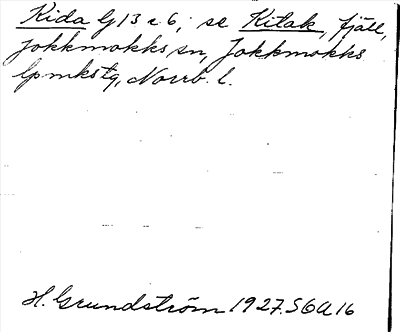 Kida G 13 c 6; se Kitak, fjäll,
Jokkmokks sn, Jokkmokks
lpmkstg, Norrb. l.
H. Grundström 1927. SOA 16